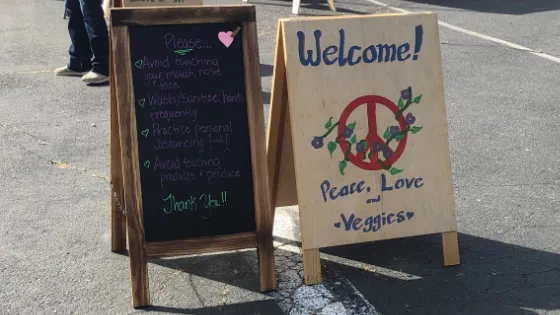 Please...
Avoid touching
your mouth, nose
face
Wash/sanitize hands
frequently
Practice personal
distancing
Avoid touching
products + produce
Thank You!!
Welcome!
Peace, Love
and
Veggies